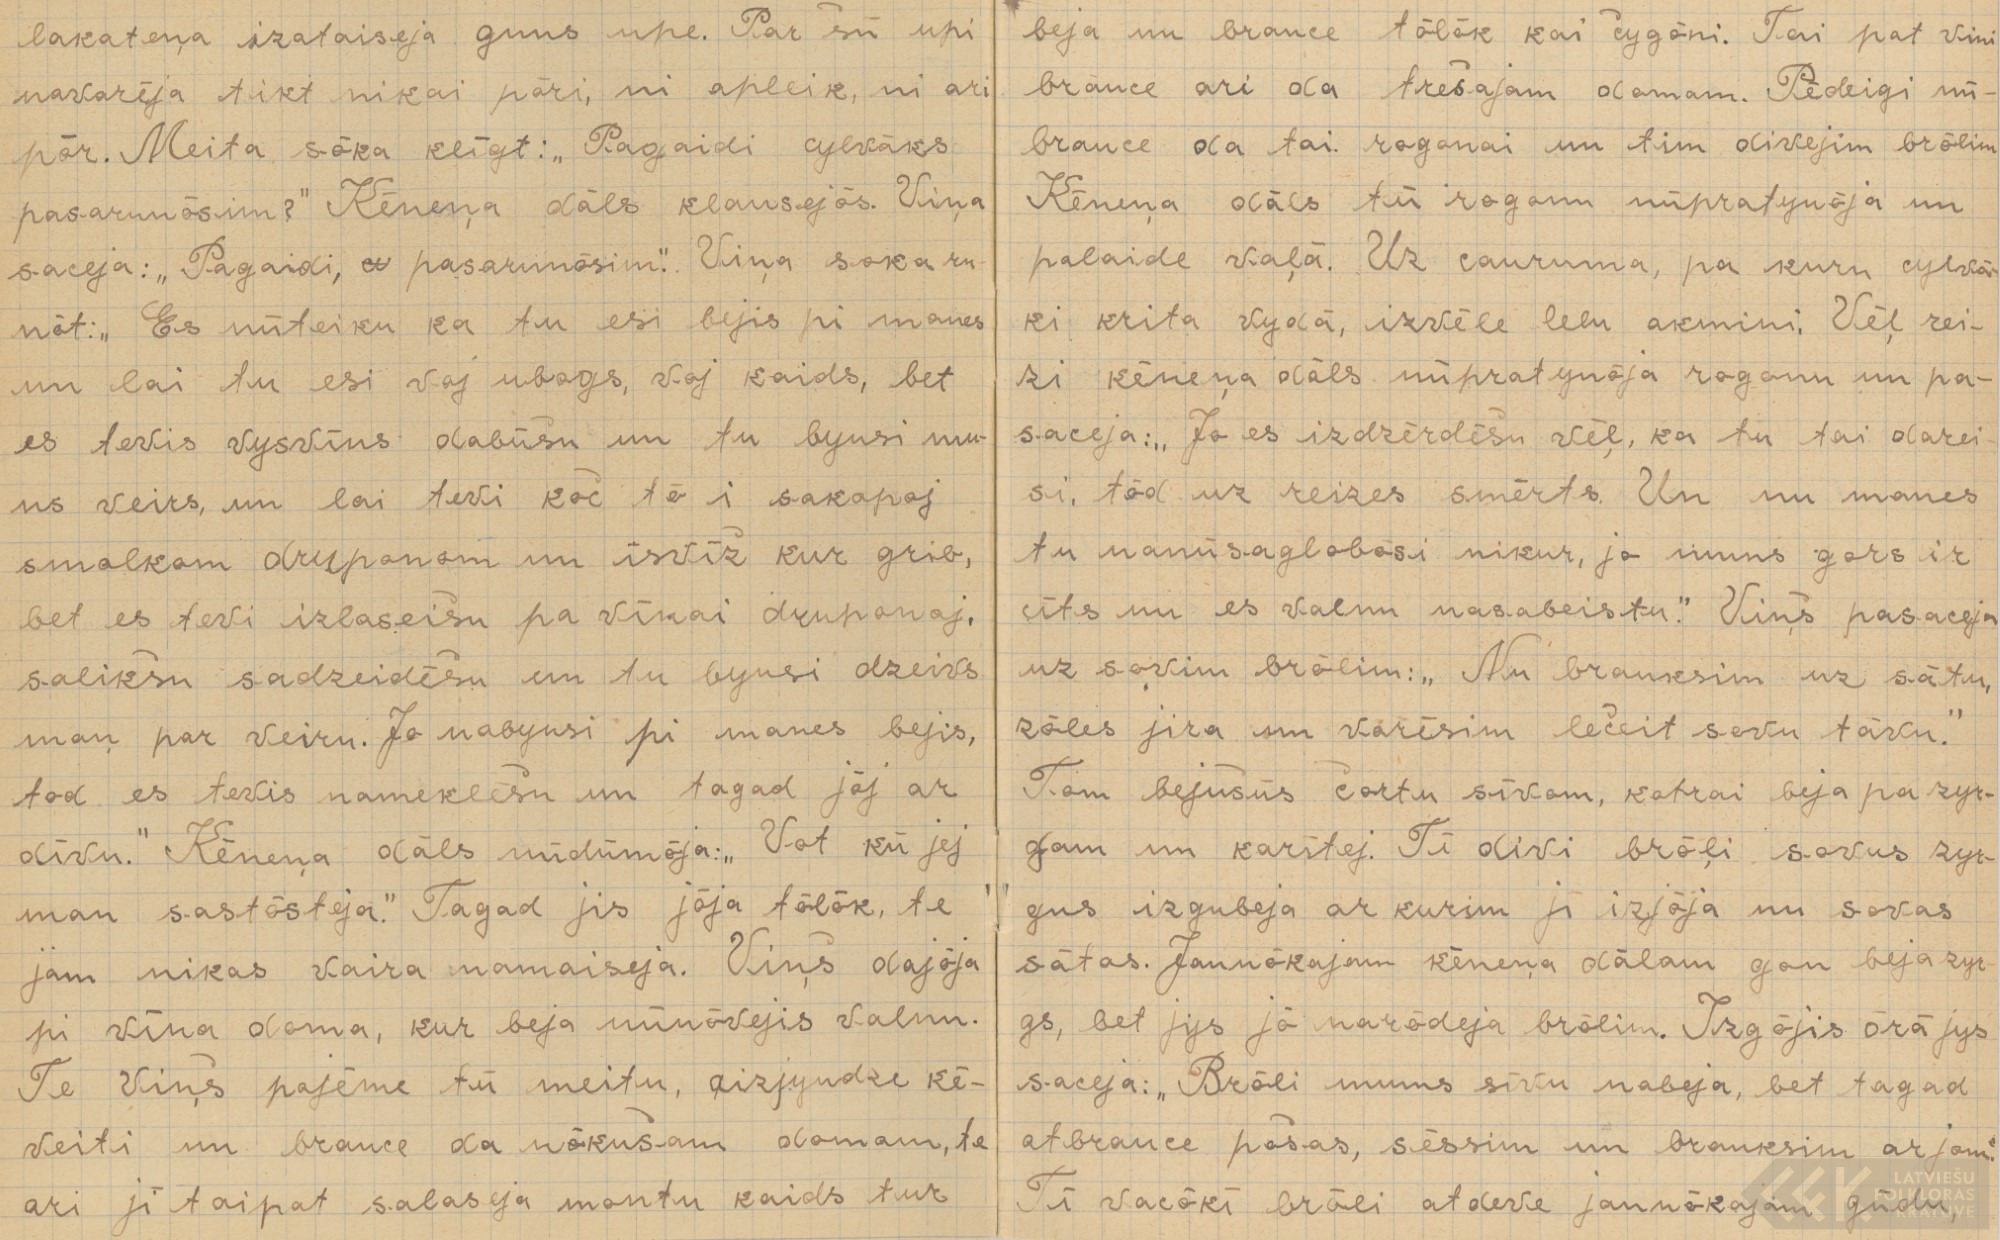 lakateņa izataiseja guns upe. Par šū upi
navarēja tikt nikai pōri, ni apleik, ni ari
pōr. Meita sōka klīgt: „Pagaidi cylvāks
pasarunōsim?" Kēneņa dāls klausejōs. Viņa
saceja: „Pagaidi, pasarunōsim." Viņa soka ru-
nōt: „Es nūteiku ka tu esi bejis pi manes
un lai tu esi voj ubogs, voj kaids, bet
es tevis vysvīns dabūšu un tu byusi mu-
ns veirs, un lai tevi koč tō i sakapoj
smolkom druponom un isvīž kur grib,
bet es tevi izlaseišu pa vīnai druponoj,
salikšu sadzeidēšu un tu byusi dzeivs
maņ par veiru. Jo nabyusi pi manes bejis,
tod es tevis nameklēšu un tagad jōj ar
dīvu." Kēneņa dāls nūdūmōja: „Vot kū jej
man sastōsteja." Tagad jis jōja tōlōk, te
jam nikas vaira namaiseja. Viņš dajōja
pi vīna doma, kur beja nūnōvejis valnu.
Te viņš pajēme tū meitu, aizjyudze kē-
veiti un brauce da nōkušam domam, te
ari jī taipat salaseja montu kaids tur
beja un brauce tōlōk kai čygōni. Tai pat vini
brauce ari da trešajam domam. Pēdeigi nū-
brauce da tai roganai un tim divejim brōlim
Kēneņa dāls tū roganu nūpratynōja un
palaide vaļā. Uz cauruma, pa kuru cylvā-
ki krita vydā, izvēle lelu akmini. Vēļ rei-
zi kēneņa dāls nūpratynōja roganu un pa-
saceja: „Jo es izdzērdēšu vēļ, ka tu tai darei-
si, tōd uz reizes smērts. Un nu manes
tu nanūsaglobōsi nikur, jo muns gors ir
cīts un es valnu nasabeistu." Viņš pasaceja
uz sovim brōlim: „Nu brauksim uz sātu,
zōles jira un varēsim lečeit sovu tāvu."
Tom bejušūs čortu sīvom, katrai beja pa zyr-
gam un karītej. Tī divi brōļi sovus zyr-
gus izgubeja ar kurim jī izjōja nu sovas
sātas. Jaunōkajam kēneņa dālam gon beja zyr-
gs, bet jys jō narōdeja brōlim. Izgōjis ōrā jys
saceja: „Brōli mums sīvu nabeja, bet tagad
atbrauce pošas, sēssim un brauksim ar jom."
Tī vacōkī brōli atdeve jaunōkajam gūdu,
LATVIEŠU
FOLKLORAS
KRĀTUVE